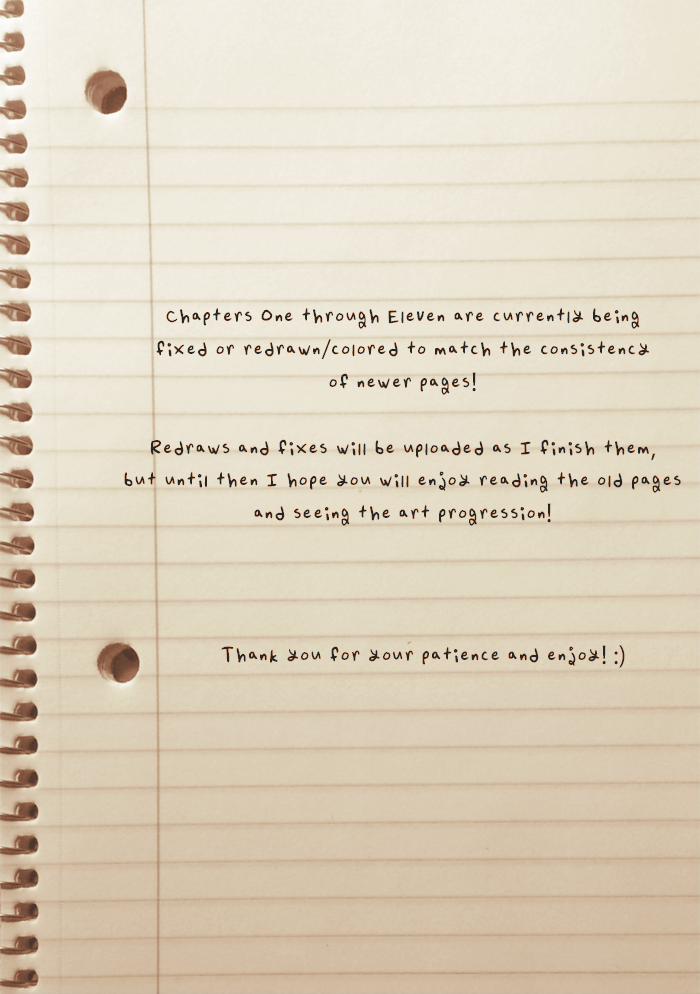 Chapters One through Eleven are currently being
fixed or redrawn/colored to match the consistency
of newer pages!
Redraws and fixes will be uploaded as I finish them,
but until then I hope you will enjoy reading the old pages
and seeing the art progression!
Thank you for your patience and enjoy! :)